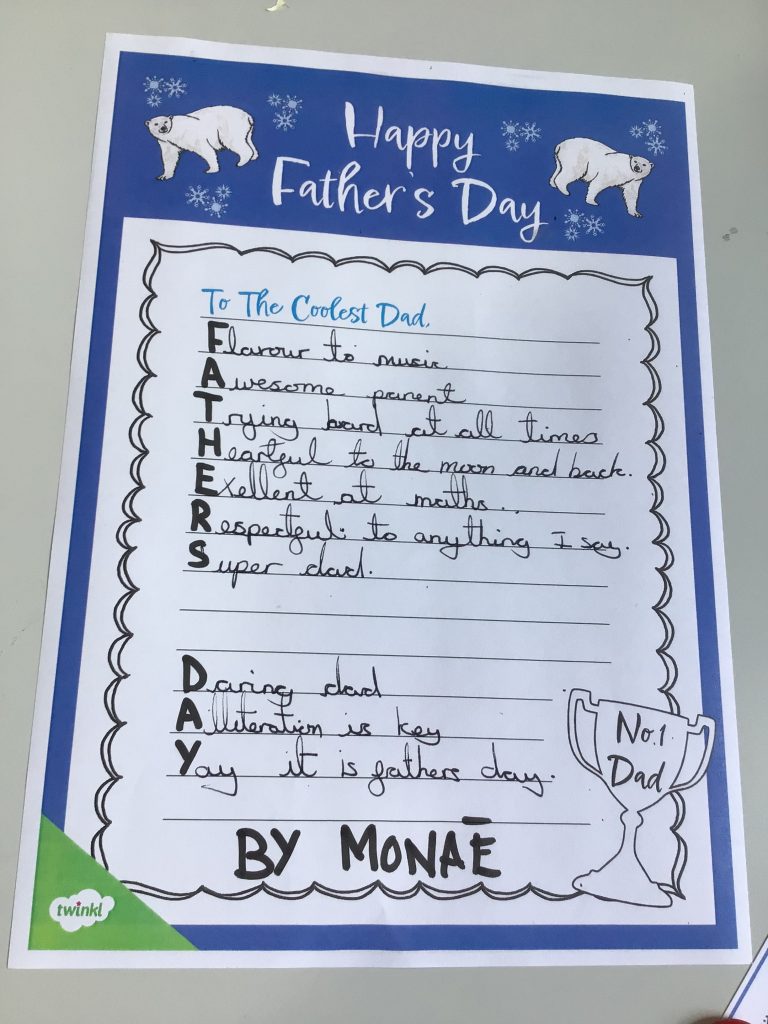 Happy
Father's Day
To The Coolest Dad,
Flavour to music
Awesome parent
Trying hard at all times
Heartful to the moon and back.
Exellent at maths..
Respectful: to anything I say.
Super dad.
Daring dad
Alliteration is key
Yay it is fathers day.
No.1
Dad
BY MONAĒ
twinkl